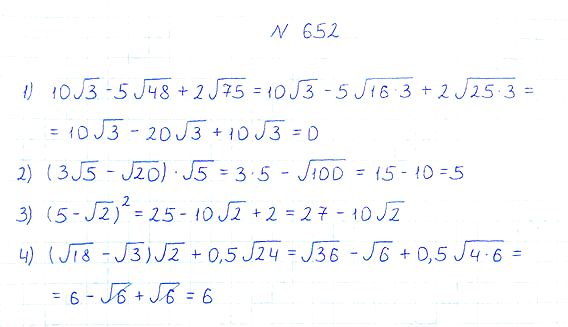 N 652
1) 10√3 - 5√48 + 2√75 = 10√3 - 5√16·3 + 2√25·3 =
= 10√3 - 20√3 + 10√3 = 0
2) (3√5 - √20)·√5 = 3·5 - √100 = 15 - 10 = 5
3) (5 - √2)² = 25 - 10√2 + 2 = 27 - 10√2
4) (√18 - √3)√2 + 0,5√24 = √36 - √6 + 0,5√4·6 =
= 6 - √6 + √6 = 6